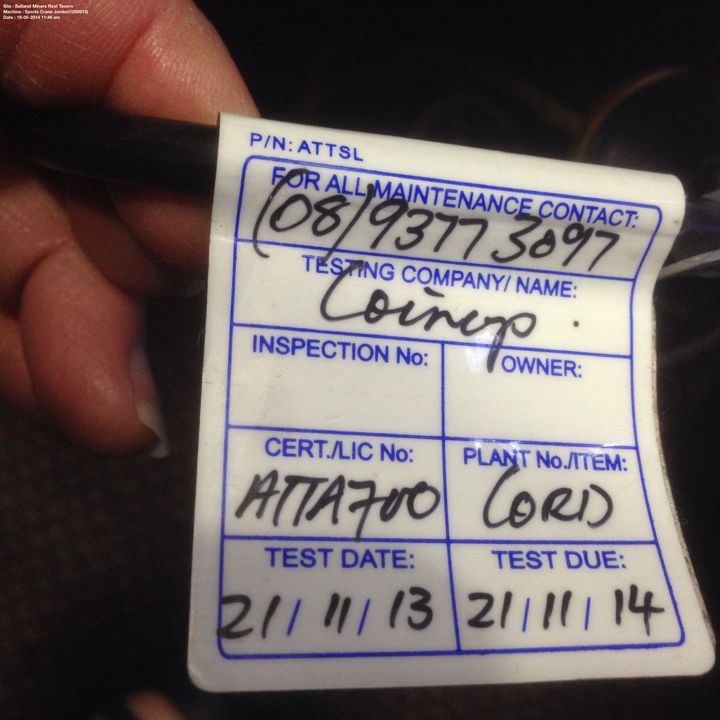 Site : Ballarat Miners Rest Tavern
Machine : Sports Crane Jumbo(1200913)
Date : 19-05-2014 11:46 am
P/N: ATTSL
FOR ALL MAINTENANCE CONTACT:
(08) 9377 3097
TESTING COMPANY/ NAME:
Coinup.
INSPECTION No: OWNER:
CERT./LIC No: PLANT No./ITEM:
ATTA700 CORD
TEST DATE: TEST DUE:
21/11/13 21/11/14